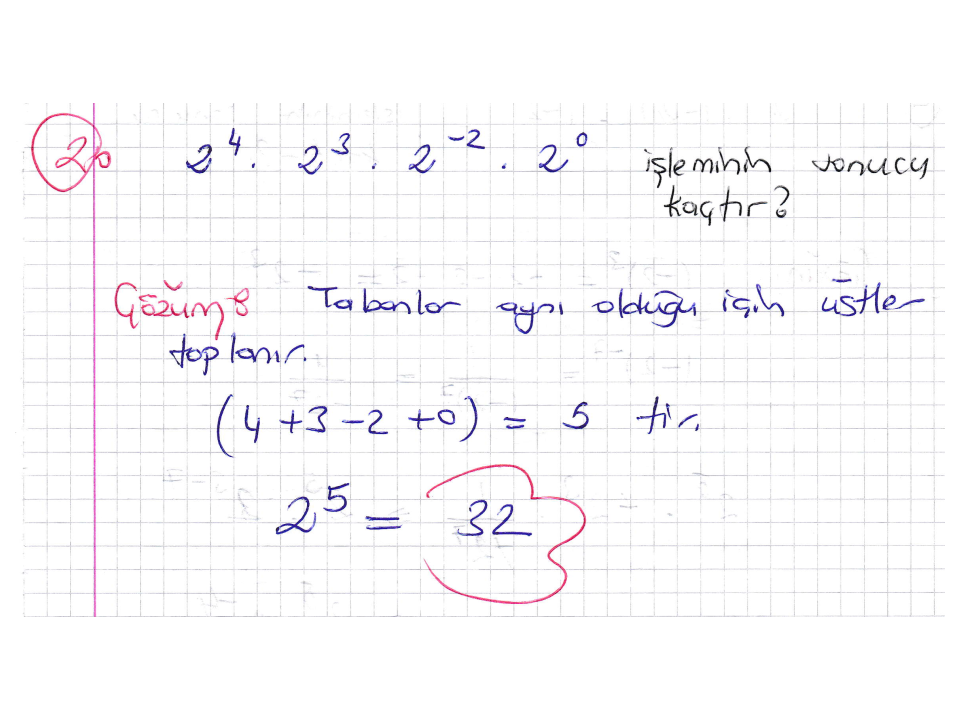 2) 2⁴ · 2³ · 2⁻² · 2⁰ işleminin sonucu
kaçtır?
Çözüm: Tabanlar aynı olduğu için üstler
toplanır.
(4 + 3 - 2 + 0) = 5 tir.
2⁵ = 32